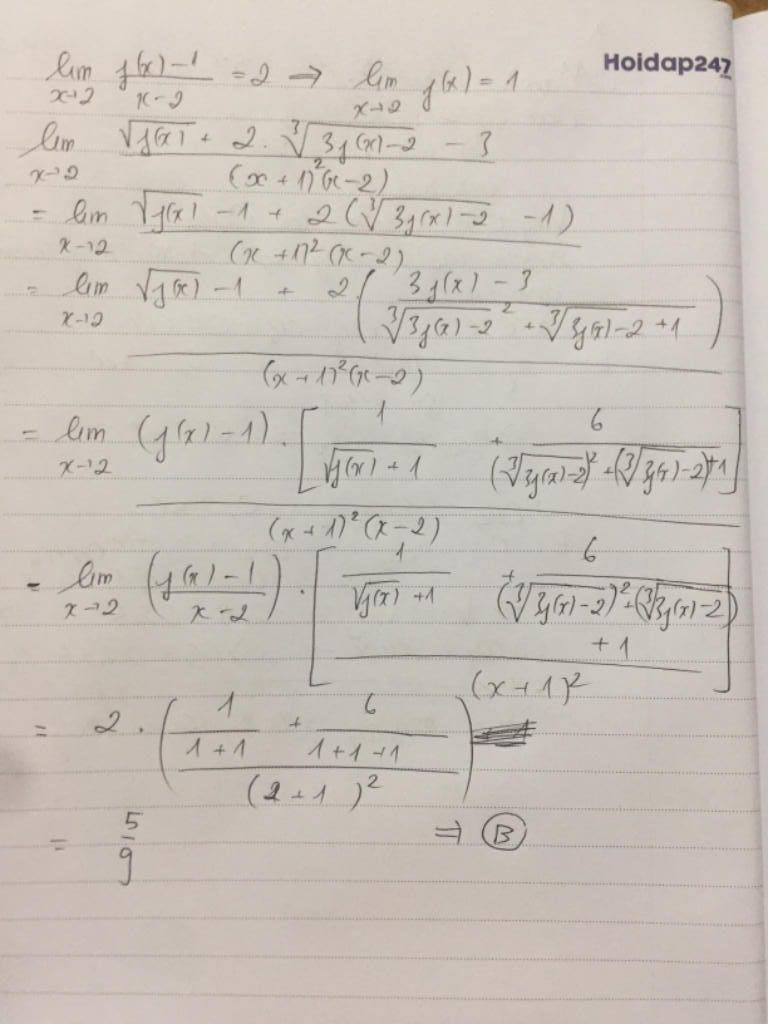 Hoidap247
lim_{x→2} (f(x) − 1)/(x − 2) = 2 → lim_{x→2} f(x) = 1
lim_{x→2} (√(f(x)) + 2 . ∛(3f(x) − 2) − 3)/((x + 1)²(x − 2))
= lim_{x→2} (√(f(x)) − 1 + 2(∛(3f(x) − 2) − 1))/((x + 1)²(x − 2))
= lim_{x→2} (√(f(x)) − 1 + 2 . ((3f(x) − 3)/(∛(3f(x) − 2)² + ∛(3f(x) − 2) + 1)))/((x + 1)²(x − 2))
= lim_{x→2} ((f(x) − 1) . [1/(√(f(x)) + 1) + 6/((∛(3f(x) − 2))² + (∛(3f(x) − 2)) + 1)])/((x + 1)²(x − 2))
= lim_{x→2} ((f(x) − 1)/(x − 2)) . [(1/(√(f(x)) + 1) + 6/((∛(3f(x) − 2))² + (∛(3f(x) − 2)) + 1))/((x + 1)²)]
= 2 . ((1/(1 + 1) + 6/(1 + 1 + 1))/((2 + 1)²))
= 5/9 ⇒ B